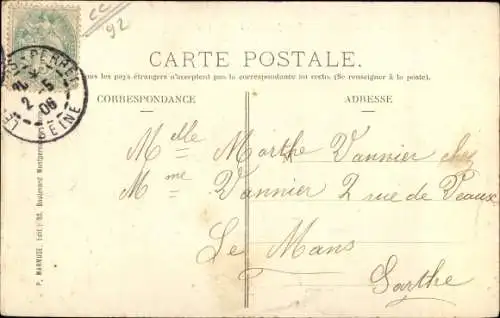 CC
92
CARTE POSTALE.
les pays étrangers n'acceptent pas la correspondance au recto. (Se renseigner à la poste).
CORRESPONDANCE
ADRESSE
LE PERREUX
2 - 5
06
SEINE
Melle Marthe Vannier chez
Mme Vannier 2 rue de Vaux
Le Mans
Sarthe
P. MARMUSE, Edit.